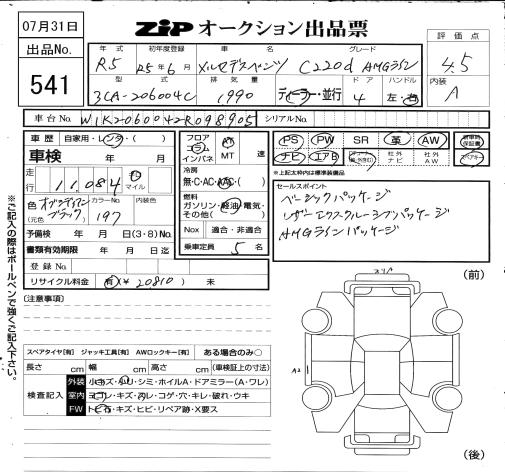 07月31日
ZIP オークション出品票
出品No.
541
年式 初年度登録 車名 グレード
R5 R5年6月 メルセデスベンツ C220d AMGライン
型式 排気量 ドア ハンドル
3CA-206004C 1,990 ディーラー・並行 4 左・右
評価点
4.5
内装
A
車台No. W1K2060042R098905 シリアルNo.
車歴 自家用・レンタ・( )
車検 年 月
走行 11,084 キロ マイル
色 オブシディアンブラック カラーNo. 197 内装色
(元色)
予備検 年 月 日 (3・8) No.
書類有効期限 年 月 日
登録No.
リサイクル料金 有(¥20810) 未
フロア コラム インパネ AT MT 速
冷房 無・C・AC・AAC・( )
燃料 ガソリン・軽油・電気・その他( )
Nox 適合・非適合
乗車定員 5 名
PS PW SR 革 AW
ナビ エアB 社外ナビ 社外AW
新車時保証書
スペアキー
※上記太枠内は下見確認
セールスポイント
ベーシックパッケージ
レザーエクスクルーシブパッケージ
AMGラインパッケージ
(注意事項)
スペアタイヤ[有] ジャッキ工具[有] AWロックキー[有] ある場合のみ○
長さ cm 幅 cm 高さ cm (車検証上の寸法)
検査記入
外装 小キズ・凹・シミ・ホイルA・ドアミラー(A・ワレ)
室内 ヨゴレ・キズ・スレ・コゲ・穴・キレ・破れ・ウキ
FW トビ石・キズ・ヒビ・リペア跡・X要ス
※ご記入の際はボールペンで強くご記入下さい。
(前)
スリA
A2
(後)